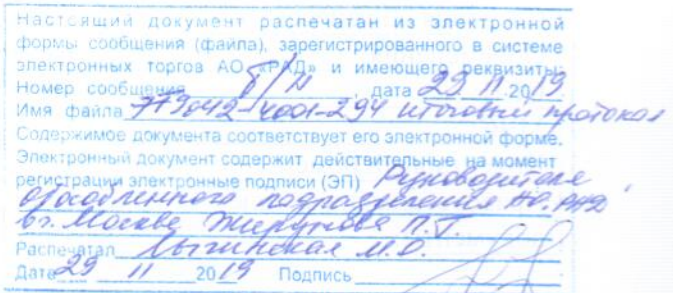 Настоящий документ распечатан из электронной
формы сообщения (файла), зарегистрированного в системе
электронных торгов АО «РАД» и имеющего реквизиты:
Номер сообщения б/н, дата 29 11 2019
Имя файла 4001-294 итоговый протокол
Содержимое документа соответствует его электронной форме.
Электронный документ содержит действительные на момент
регистрации электронные подписи (ЭП) Руководителя
обособленного подразделения АО "РАД"
в г. Москве П.Т.
Распечатал М.О.
Дата 29 11 2019 Подпись